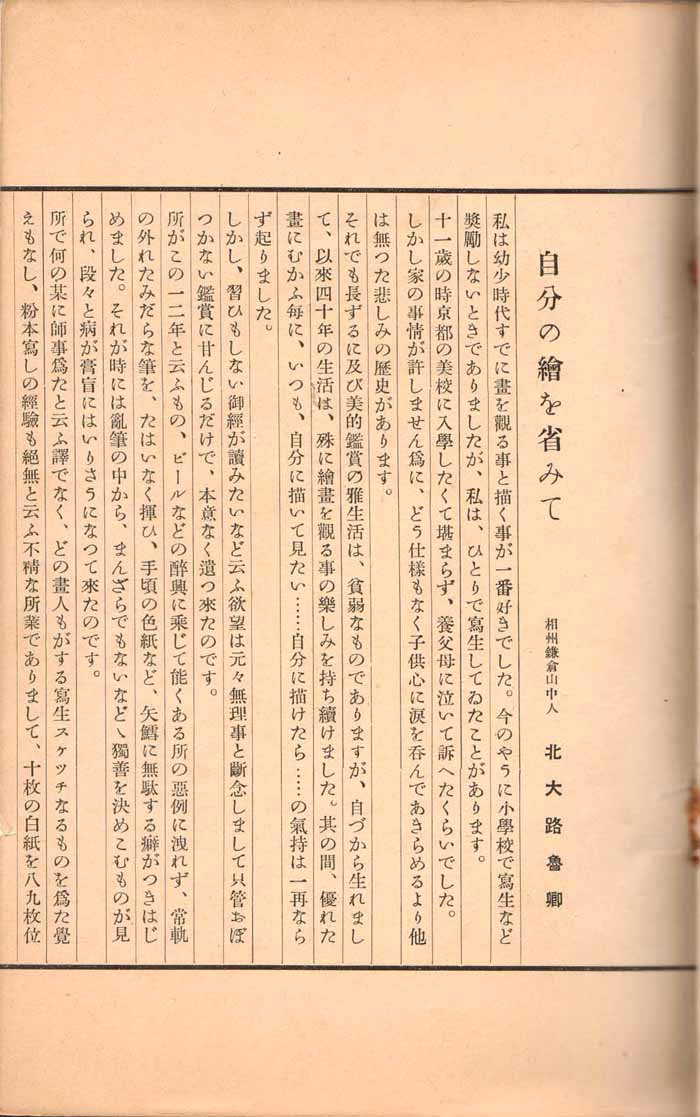 自分の繪を省みて
相州鎌倉山中人 北大路魯卿
私は幼少時代すでに畫を觀る事と描く事が一番好きでした。今のやうに小學校で寫生など
奬勵しないときでありましたが、私は、ひとりで寫生してゐたことがあります。
十一歲の時京都の美校に入學したくて堪まらず、養父母に泣いて訴へたくらいでした。
しかし家の事情が許しません爲に、どう仕樣もなく子供心に淚を呑んであきらめるより他
は無つた悲しみの歷史があります。
それでも長ずるに及び美的鑑賞の雅生活は、貧弱なものでありますが、自づから生れまし
て、以來四十年の生活は、殊に繪畫を觀る事の樂しみを持ち續けました。其の間、優れた
畫にむかふ每に、いつも、自分に描いて見たい……自分に描けたら……の氣持は一再なら
ず起りました。
しかし、習ひもしない御經が讀みたいなど云ふ欲望は元々無理事と斷念しまして只管おぼ
つかない鑑賞に甘んじるだけで、本意なく遣つ來たのです。
所がこの一二年と云ふもの、ビールなどの醉興に乘じて能くある所の惡例に洩れず、常軌
の外れたみだらな筆を、たはいなく揮ひ、手頃の色紙など、矢鱈に無駄する癖がつきはじ
めました。それが時には亂筆の中から、まんざらでもないなど、獨善を決めこむものが見
られ、段々と病が膏盲にはいりさうになつて來たのです。
所で何の某に師事爲たと云ふ譯でなく、どの畫人もがする寫生スケッチなるものを爲た覺
えもなし、粉本寫しの經驗も絕無と云ふ不精な所業でありまして、十枚の白紙を八九枚位